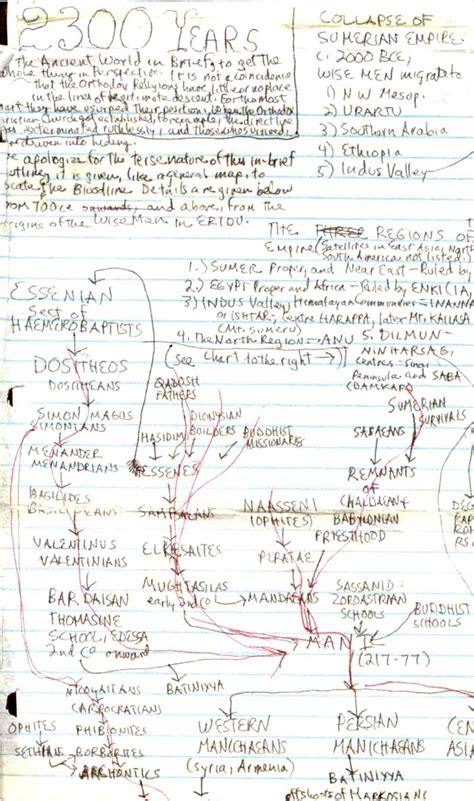 2300 YEARS
the Ancient World in Briefg to get the
whole thing in Perspective. It is not a coincidence
that the Orthodox Religions have little or no place
in the lines of legitimate descent. For the most
part they have usurped their position, when the Orthodox
Christian Church got established, for example, the directive
was exterminated ruthlessly, and those who survived,
driven into hiding.
apologize for the terse nature of this in-brief
outline; it is given, like a general map, to
locate the Bloodline. Details are given below
from 700ce onwards, and above, from the
origins of the Wise Men in ERIDU.
COLLAPSE OF
SUMERIAN EMPIRE.
c. 2000 BCE,
WISE MEN migrate to
1) NW Mesop.
2) URARTU
3) Southern Arabia
4) Ethiopia
5) Indus Valley
THE THREE REGIONS OF
EMPIRE (Satellites in East Asia, North
South America not listed:)
1.) SUMER Proper, and Near East - Ruled by
2.) EGYPT Proper and Africa - Ruled by ENKI (IA,
3) INDUS Valley, Himalayan Commander = INANNA
or ISHTAR; centre HARAPPA, later Mt. KAILASA
(Mt. Sumeru)
4. The North Region - ANU
(See Chart to the right →)
5. DILMUN -
NINHARSAG,
centres - Sinai
Peninsula and SABA
(DAMKAR)
ESSENIAN
Sect of
HAEMEROBAPTISTS
DOSITHEOS
DOSITHEANS
SIMON MAGUS
SIMONIANS
MENANDER
MENANDRIANS
BASILIDES
BASILIDEANS
VALENTINUS
VALENTINIANS
BARDAISAN
THOMASINE
SCHOOL, EDESSA
2nd Ce onward
QADOSH
FATHERS
HASIDIM
DIONYSIAN
BUILDERS
BUDDHIST
MISSIONARIES
ESSENES
SAMPSAEANS
ELKESAITES
MUGHTASILAS
early 2nd Ce
NAASSENI
(OPHITES)
PERATAE
MANDAEANS
SUMERIAN
SURVIVALS
SABAEANS
REMNANTS
OF
CHALDAEAN &
BABYLONIAN
PRIESTHOOD
SASSANID
ZOROASTRIAN
SCHOOLS
BUDDHIST
SCHOOLS
MANI
(217-77)
NICOLAITANS
BATINIYYA
CARPOCRATIANS
OPHITES
PHIBIONITES
SETHIANS
BORBORITES
ARCHONTICS
WESTERN
MANICHAEANS
(Syria, Armenia)
PERSIAN
MANICHAEANS
BATINIYYA
offshoots of MARKOSIANS
CEN
ASIA